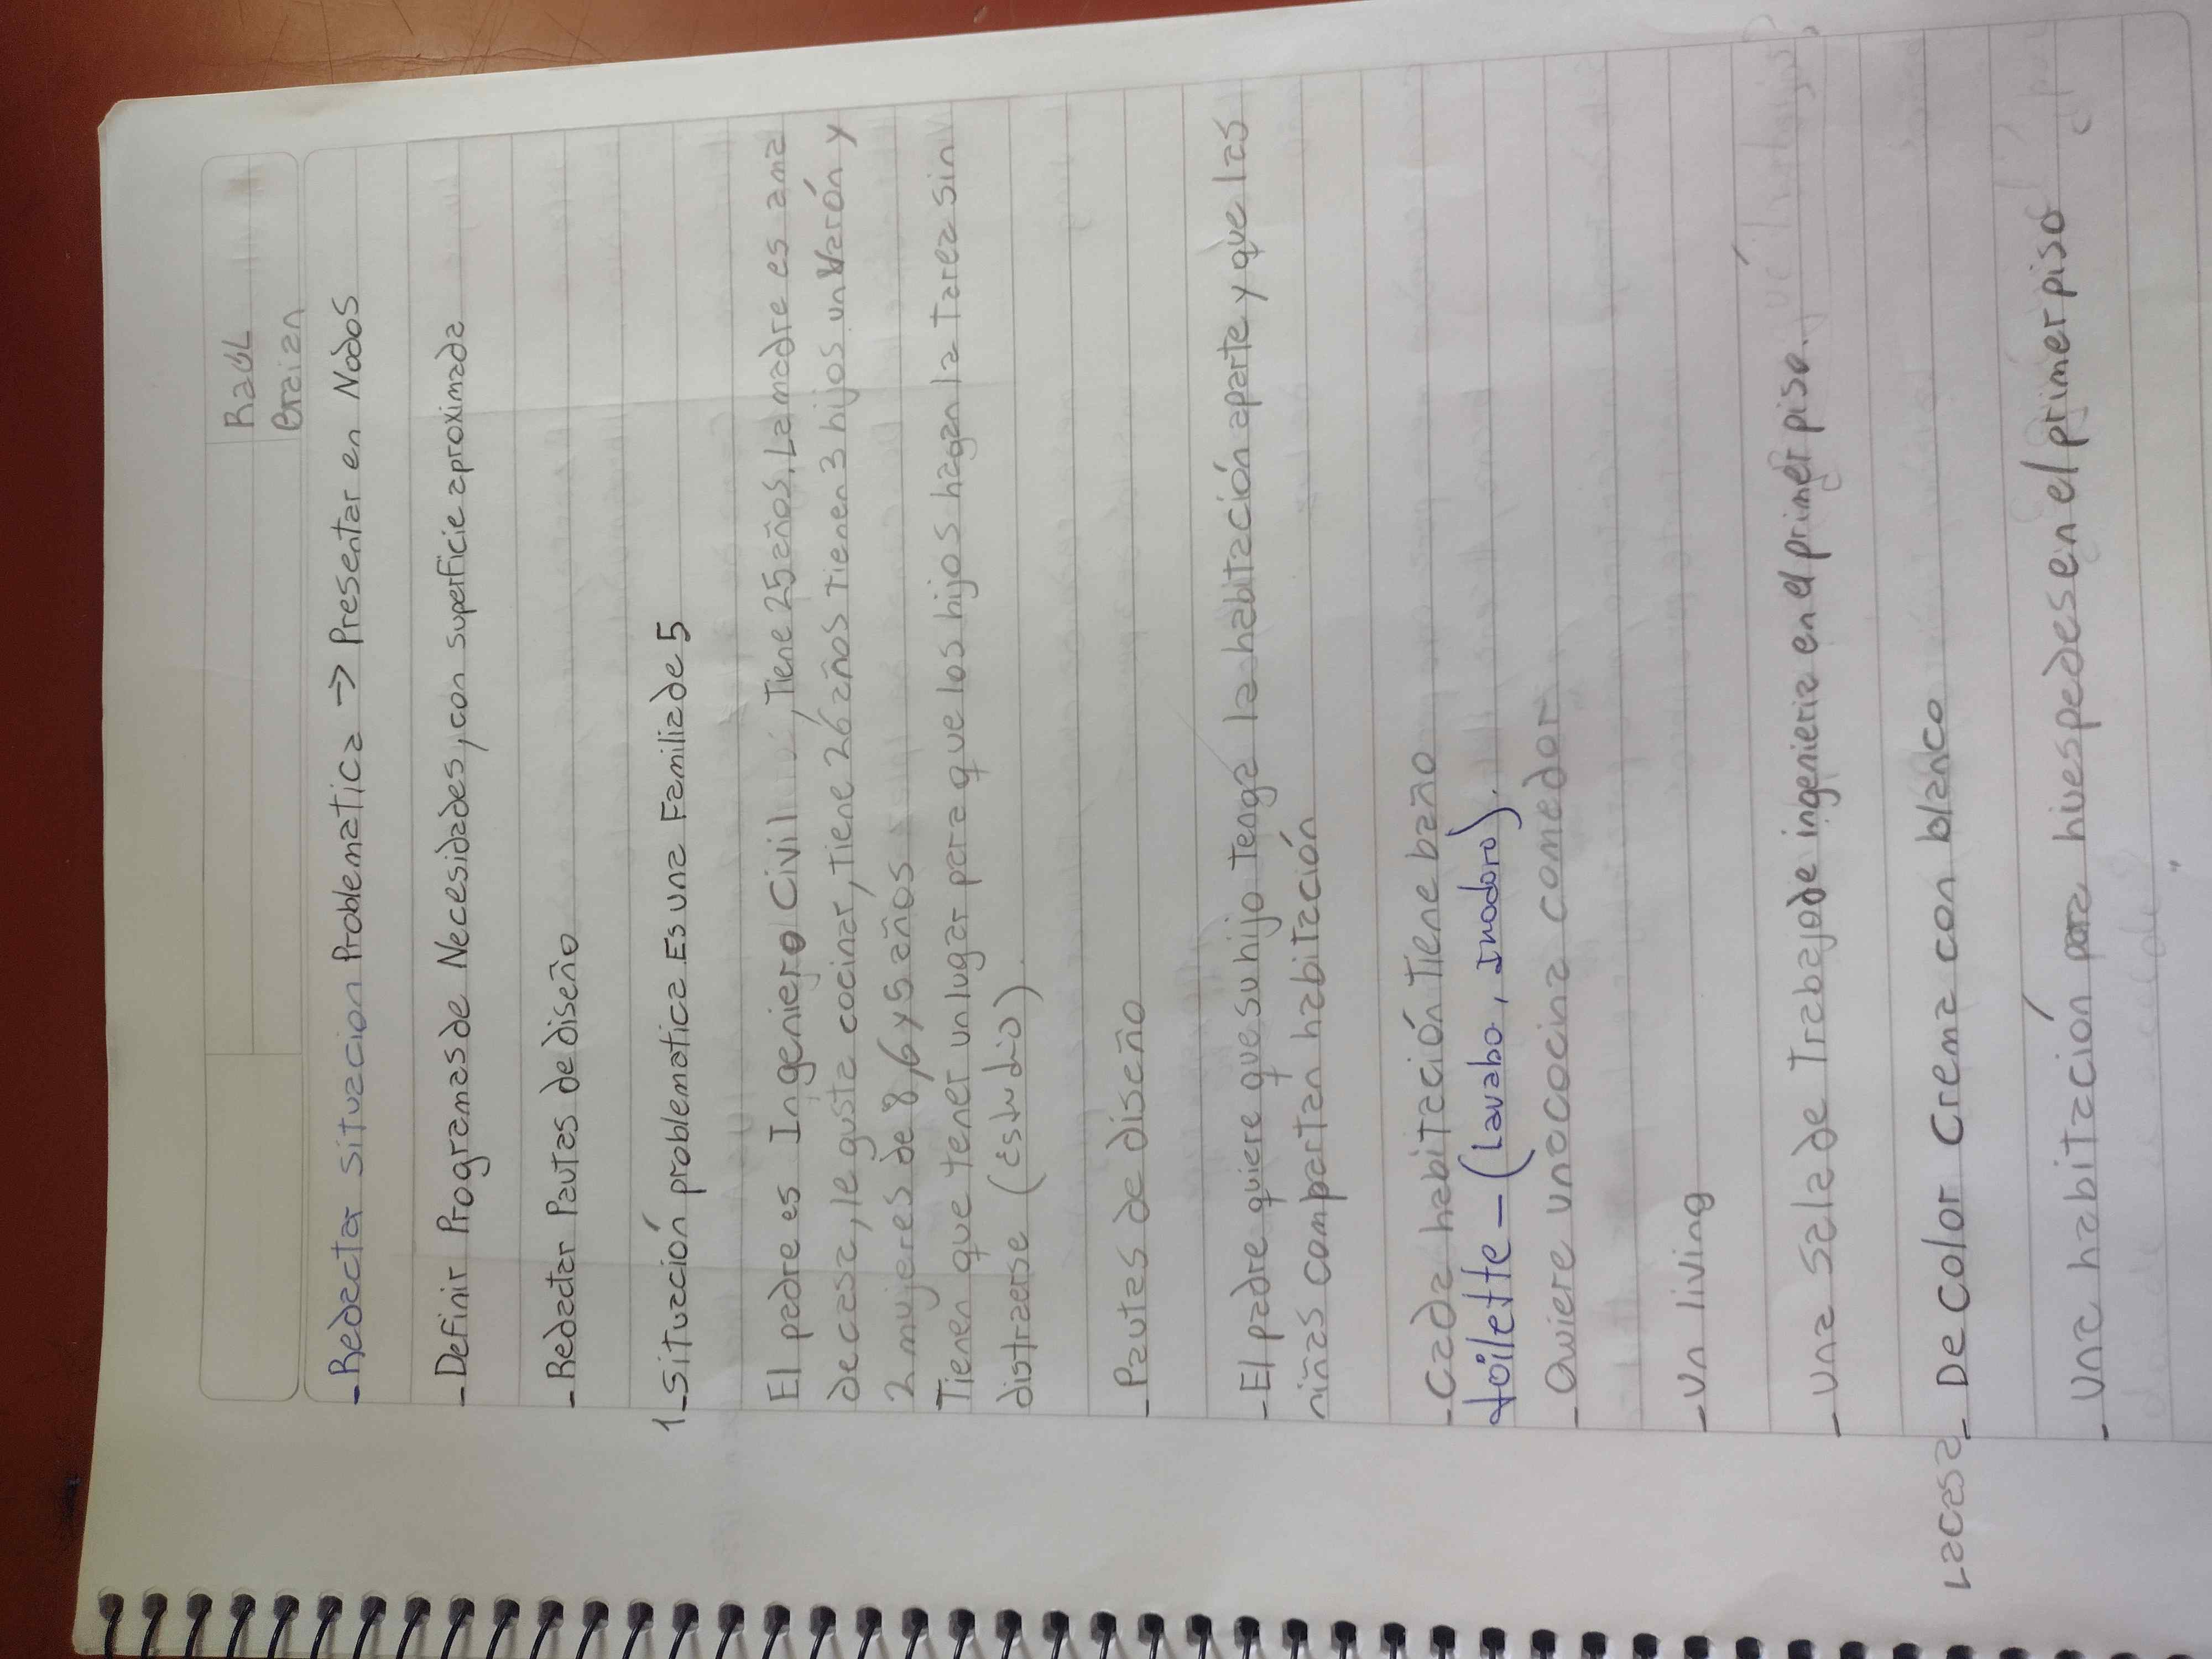 Raúl
Braian
- Redactar situacion Problematica → Presentar en Nodos
- Definir Programas de Necesidades, con superficie aproximada
- Redactar Pautas de diseño
1_ Situación problematica Es una Familia de 5
El padre es Ingeniero Civil, Tiene 25 años. La madre es ama
de casa, le gusta cocinar, Tiene 26 años Tienen 3 hijos un Varón y
2 mujeres de 8, 6 y 5 años
Tienen que tener un lugar para que los hijos hagan la Tarea sin
distraerse (estudio).
- Pautas de diseño
- El padre quiere que su hijo tenga la habitación aparte y que las
niñas compartan habitación
- Cada habitación Tiene baño
toilette - (Lavabo, Inodoro).
- Quiere una cocina comedor
- Un living
- Una Sala de Trabajo de ingenieria en el primer piso.
La casa - De Color Crema con blanco
- Una habitación para huespedes en el primer piso